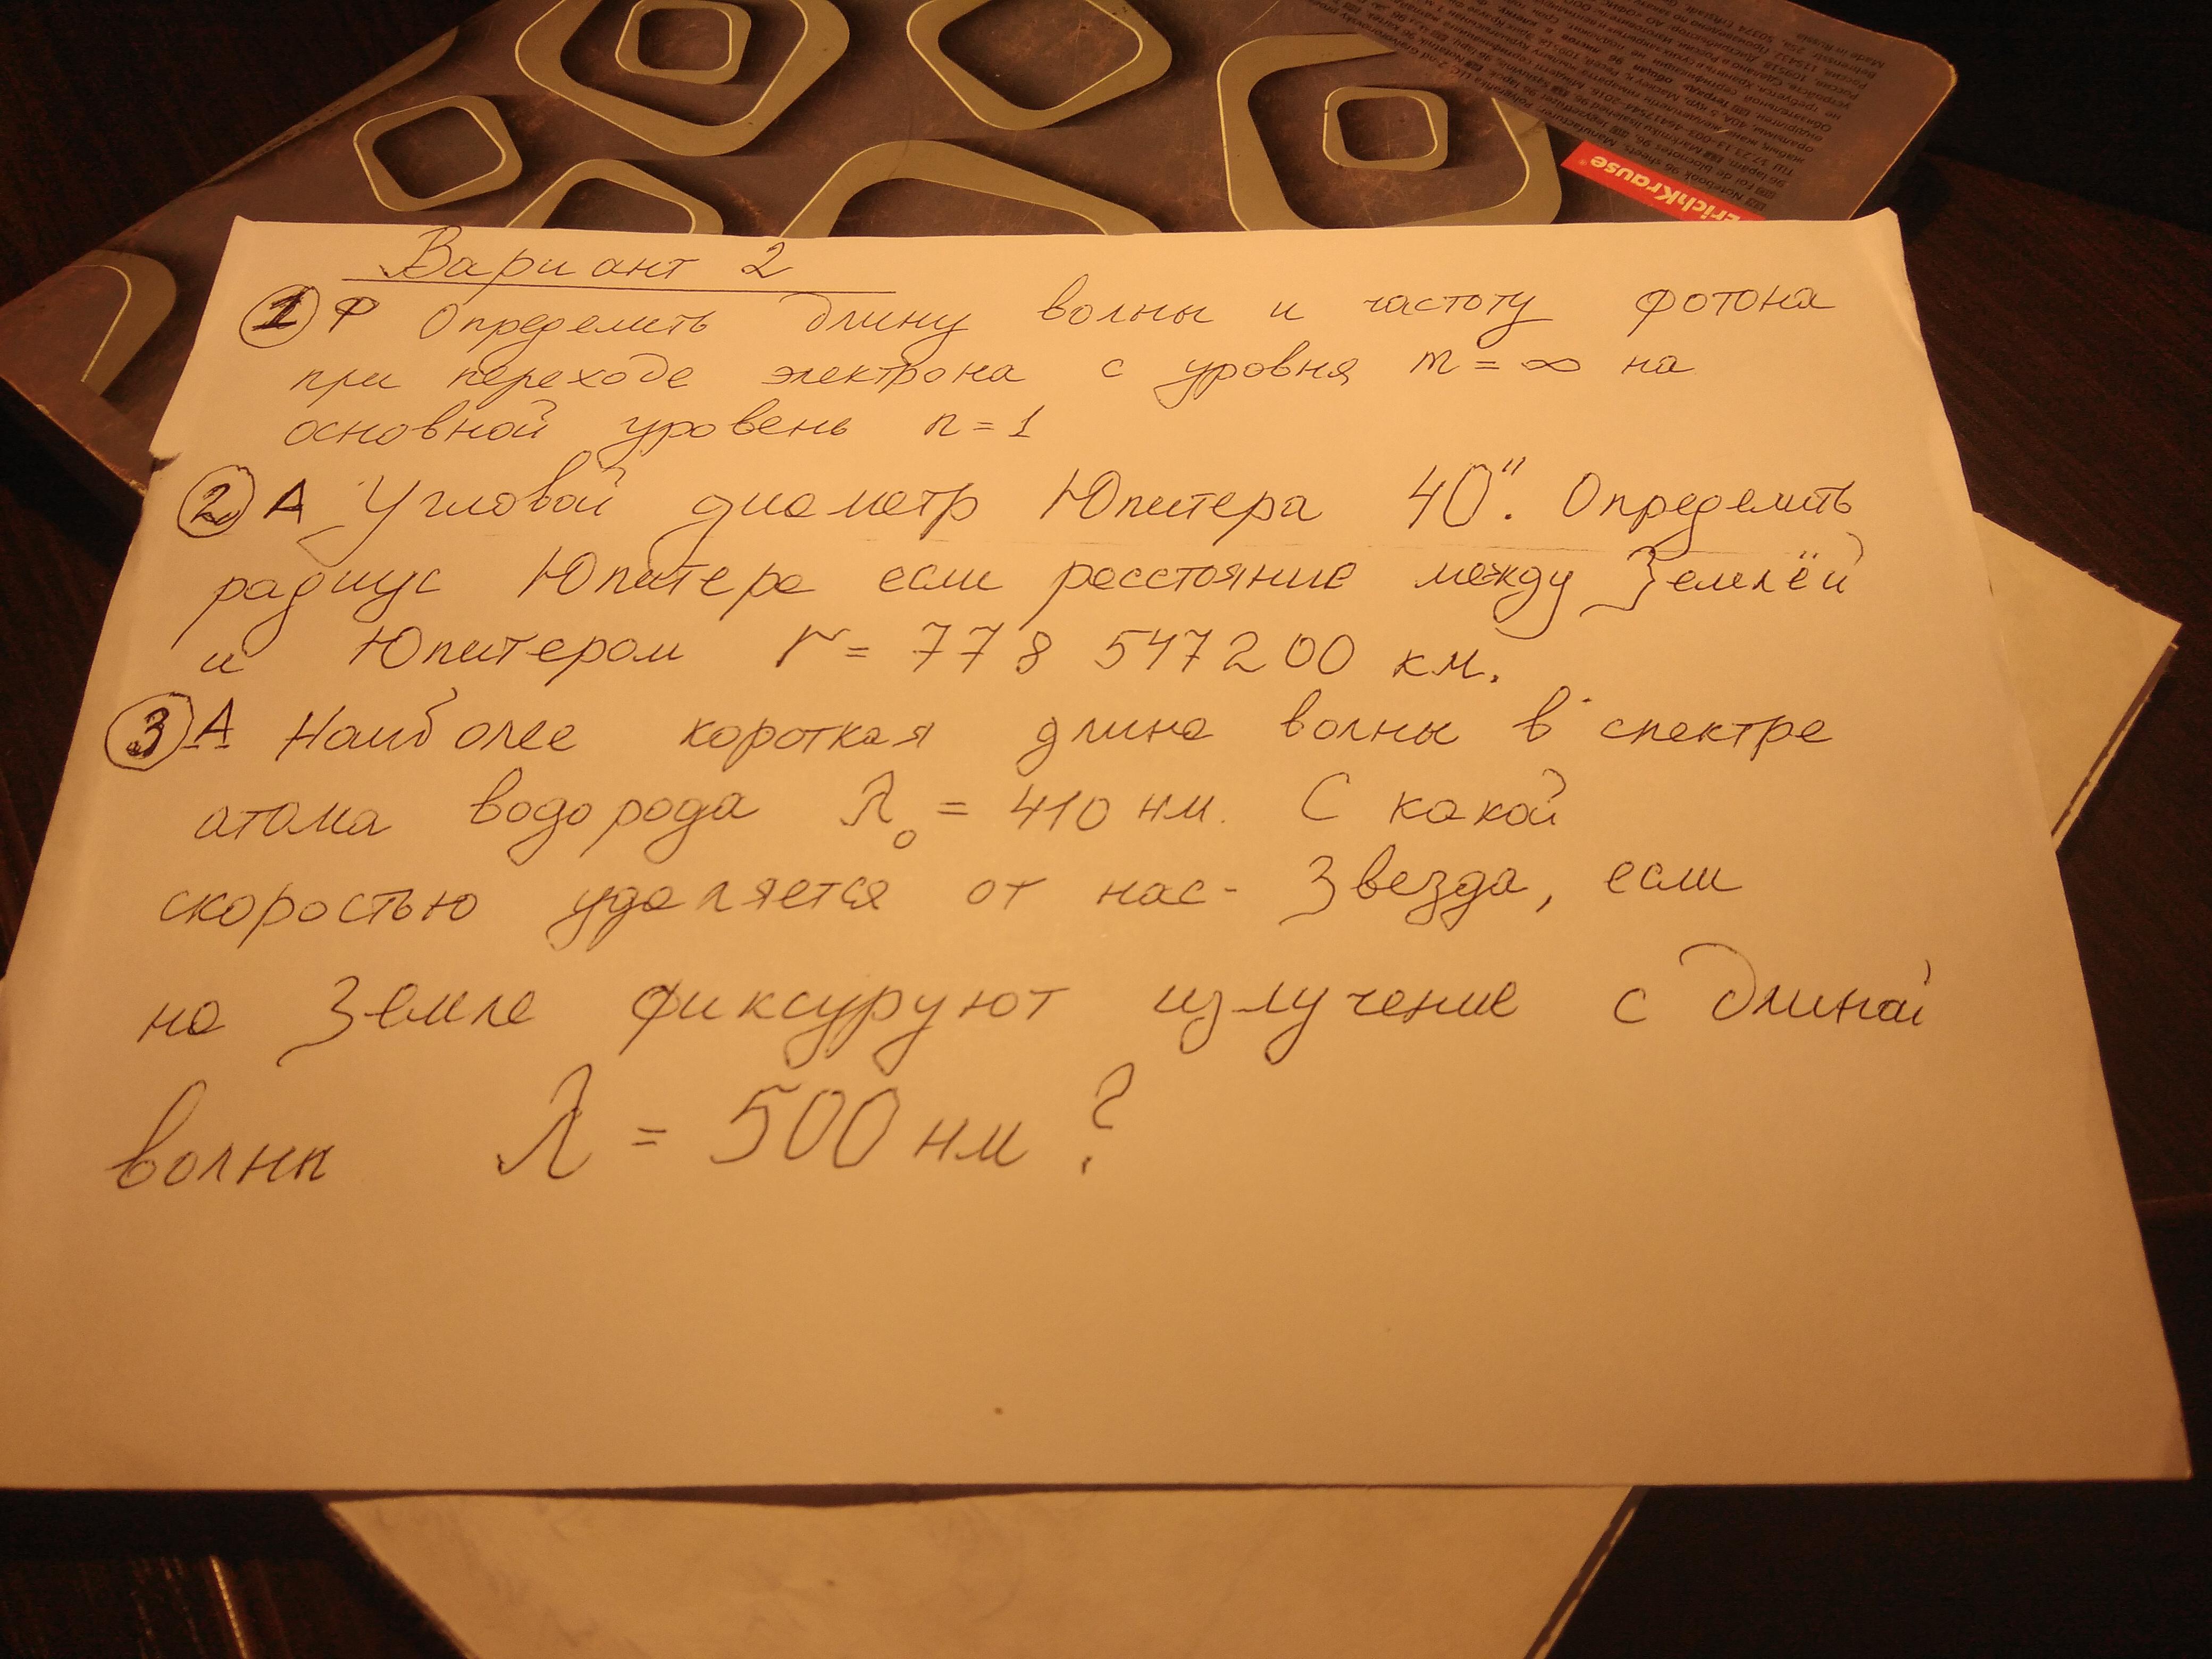 Вариант 2
① Ф Определить длину волны и частоту фотона
при переходе электрона с уровня m = ∞ на
основной уровень n = 1
② А Угловой диаметр Юпитера 40". Определить
радиус Юпитера если расстояние между Землёй
и Юпитером r = 778 547200 км.
③ А Наиболее короткая длина волны в спектре
атома водорода λ₀ = 410 нм. С какой
скоростью удаляется от нас - Звезда, если
на Земле фиксуруют излучение с длиной
волны λ = 500 нм ?
ErichKrause
Made in Russia